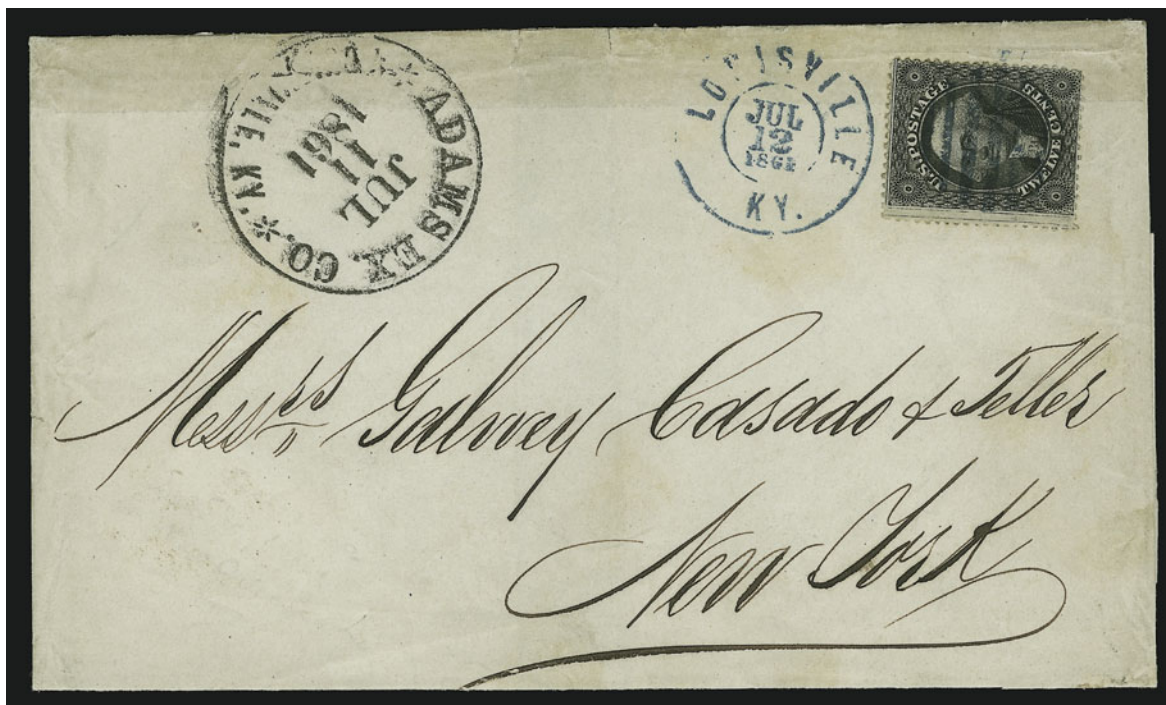 ADAMS EX. CO. * VILLE, KY. *
JUL
11
1861
LOUISVILLE
JUL
12
1861
KY.
U.S. POSTAGE
TWELVE CENTS
Messrs Galwey Casado & Teller
New York